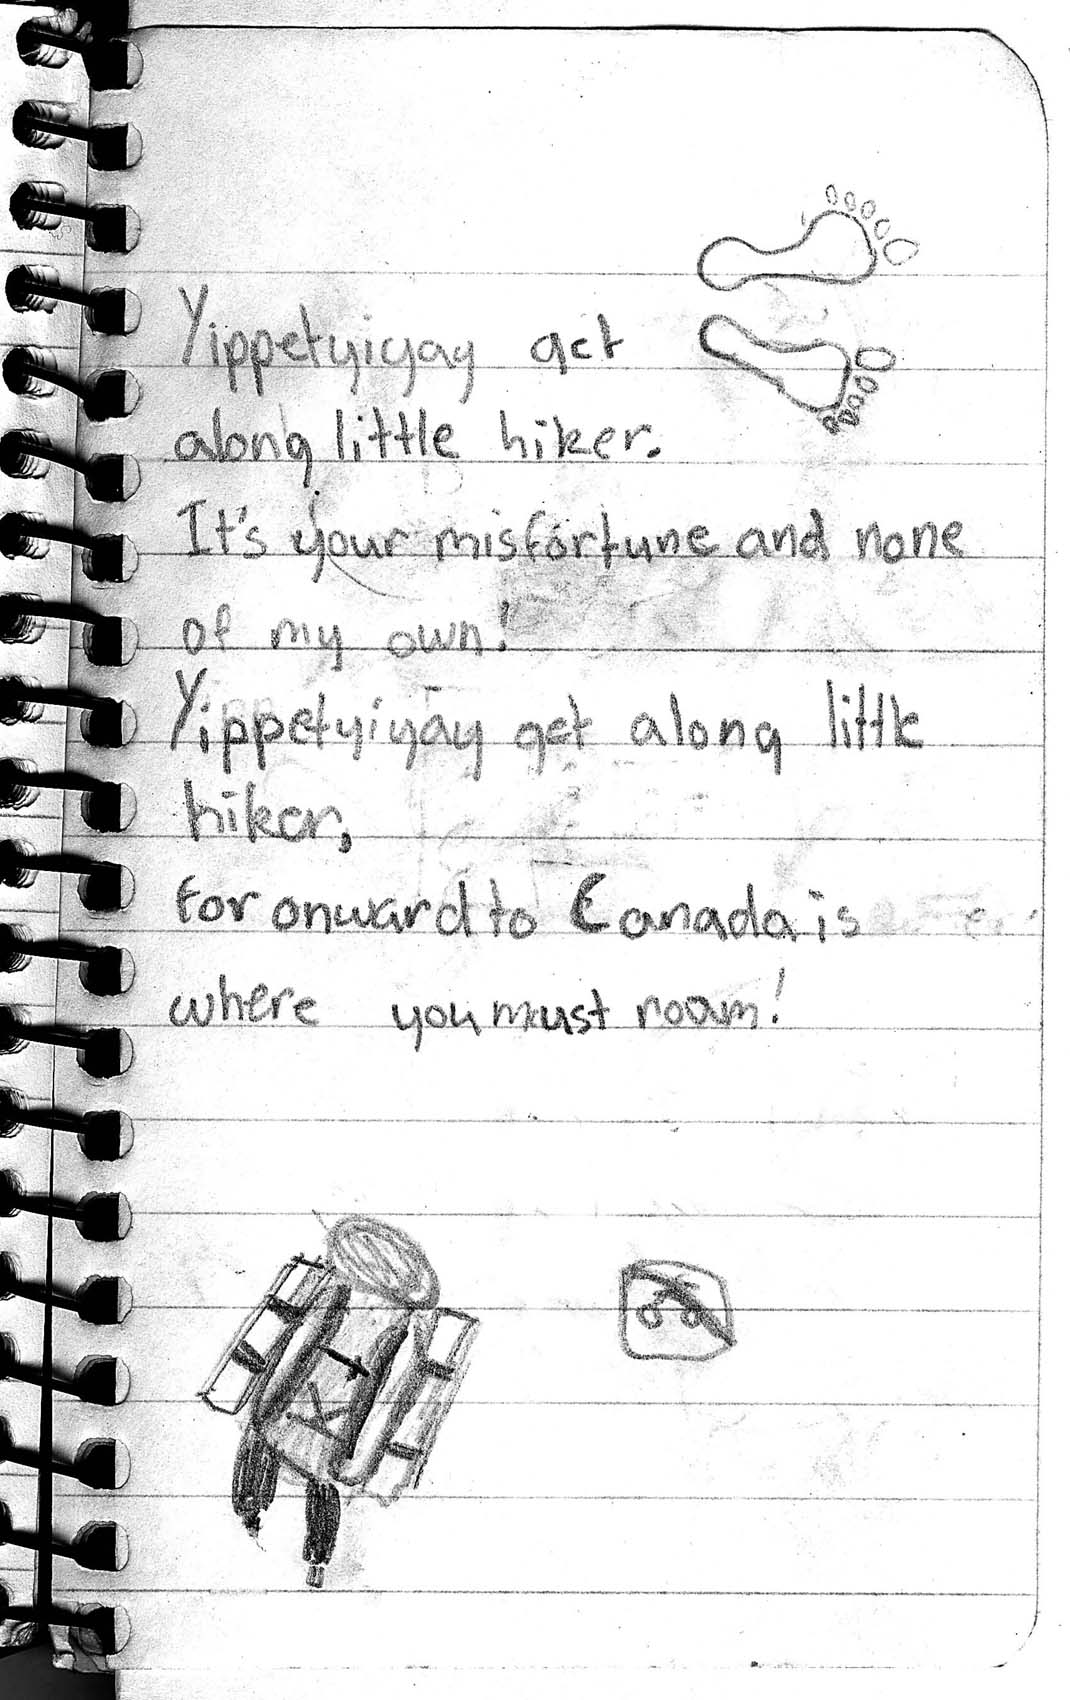 Yippetyiyay get
along little hiker.
It's your misfortune and none
of my own!
Yippetyiyay get along little
hiker,
for onward to Canada is
where you must roam!
K